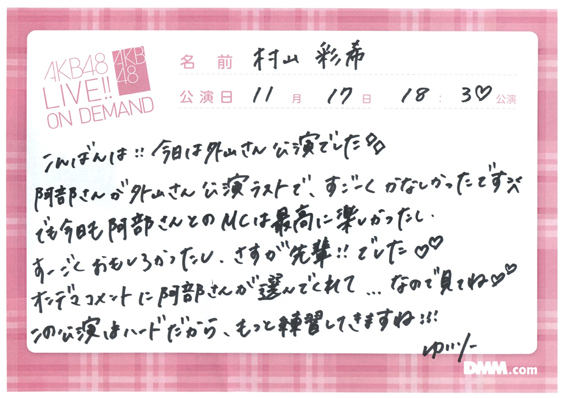 AKB48
LIVE!!
ON DEMAND
AKB
48
名前 村山 彩希
公演日 11月 17日 18:30公演
こんばんは!! 今日は外山さん公演でした
阿部さんが外山さん公演ラストで、すごーくかなしかったです
でも今日も阿部さんとのMCは最高に楽しかったし、
すーごくおもしろかったし、さすが先輩!! でした♡♡
オンデマコメントに阿部さんが選んでくれて...なので見てね♡♡
この公演はハードだから、もっと練習してきますね!!!
ゆいりー
DMM.com